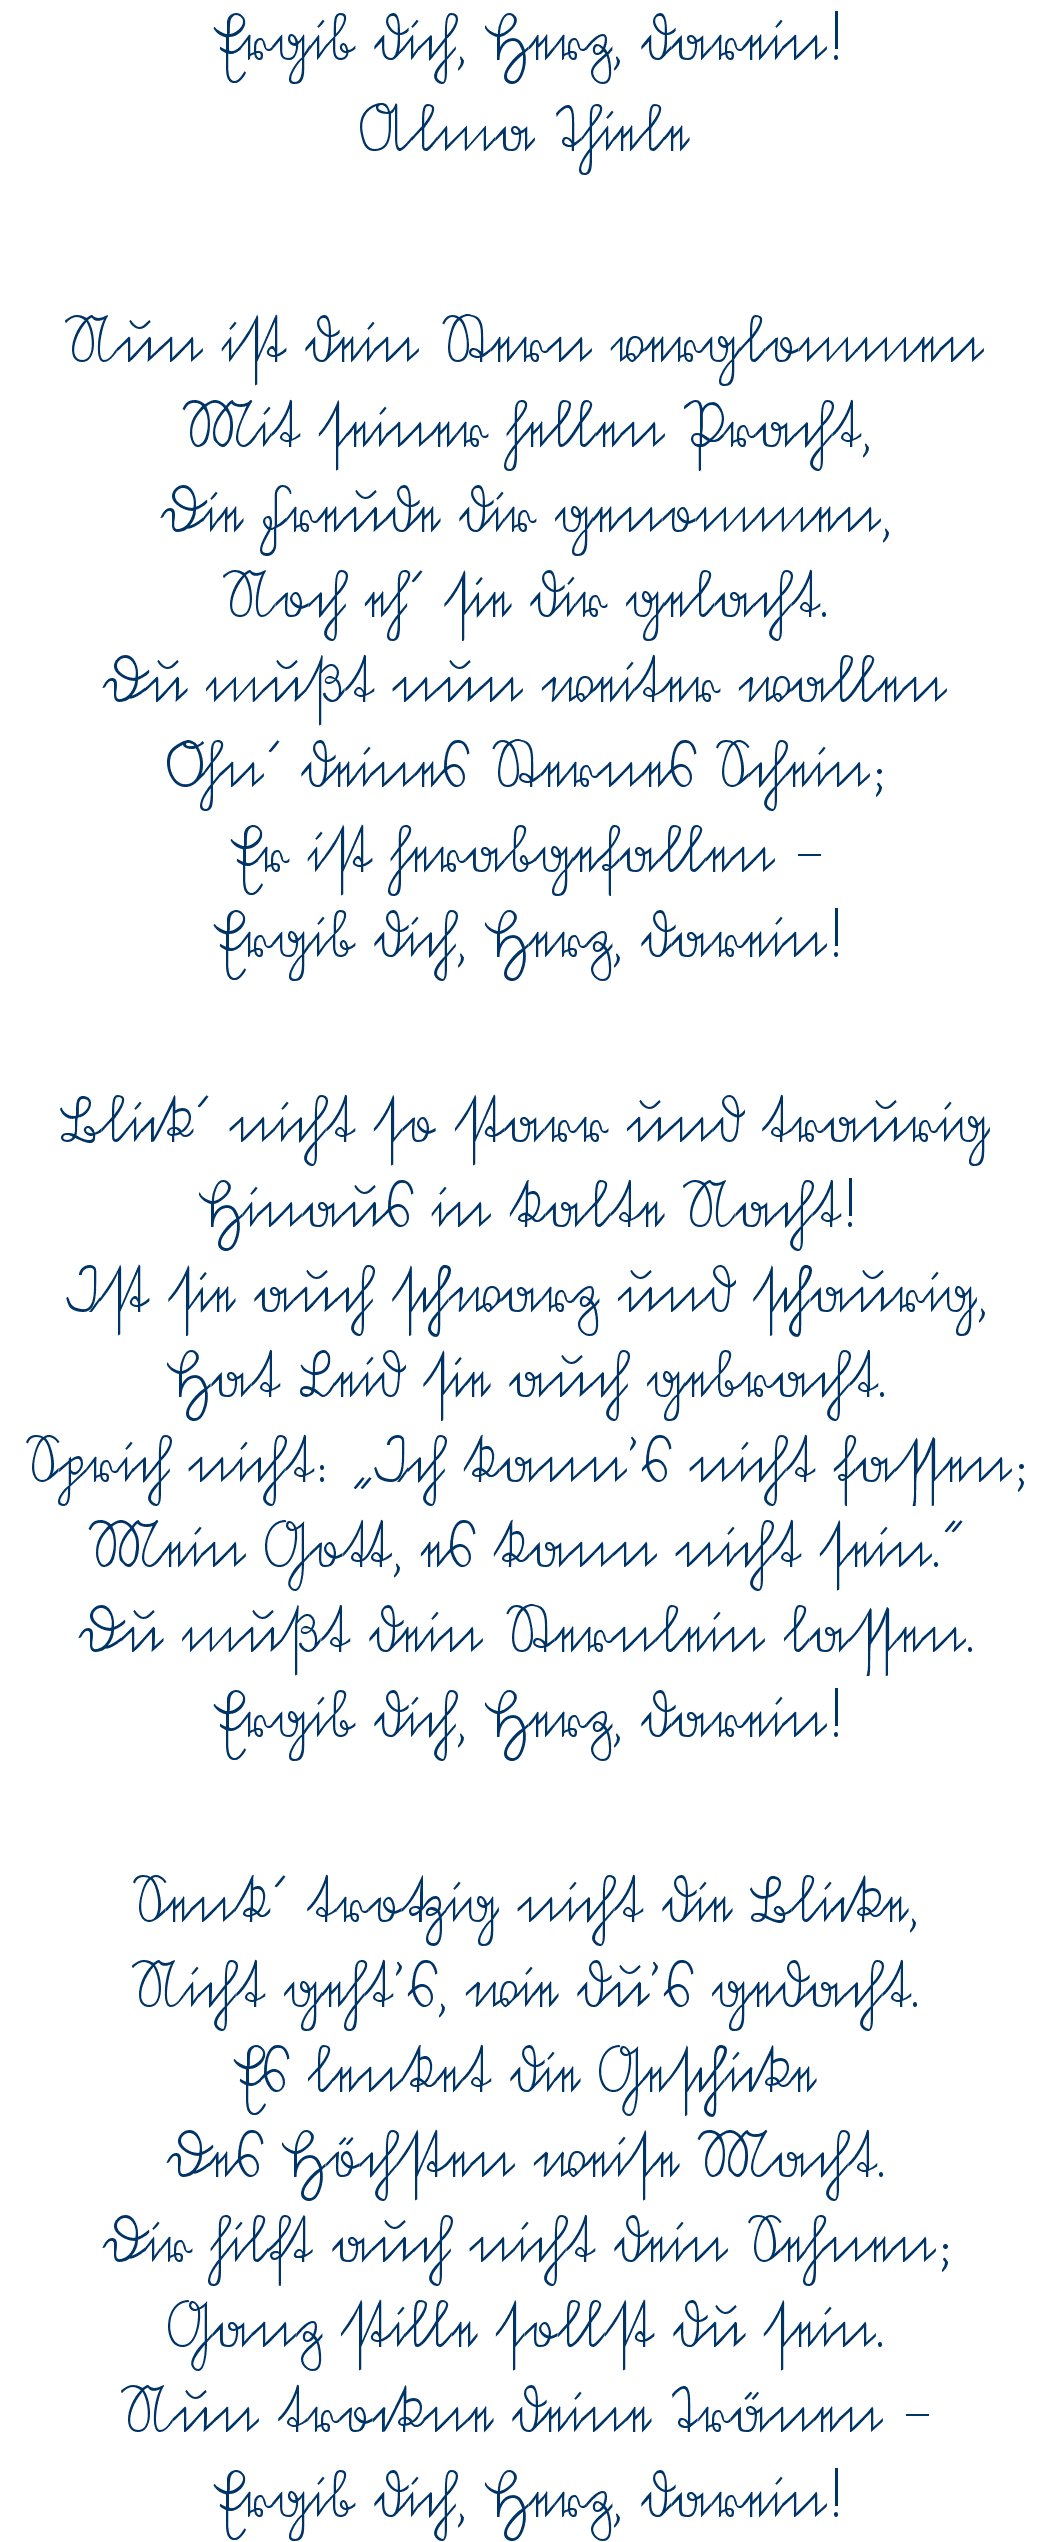 Ergib dich, Herz, darein!
Alma Thiele
Nun ist dein Stern verglommen
Mit seiner hellen Pracht,
Die Freude dir genommen,
Noch eh´ sie dir gelacht.
Du mußt nun weiter wallen
Ohn´ deines Sternes Schein;
Er ist herabgefallen –
Ergib dich, Herz, darein!
Blick´ nicht so starr und traurig
Hinaus in kalte Nacht!
Ist sie auch schwarz und schaurig,
Hat Leid sie auch gebracht.
Sprich nicht: „Ich kann's nicht fassen;
Mein Gott, es kann nicht sein.“
Du mußt dein Sternlein lassen.
Ergib dich, Herz, darein!
Senk´ trotzig nicht die Blicke,
Nicht geht's, wie du's gedacht.
Es lenket die Geschicke
Des Höchsten weise Macht.
Dir hilft auch nicht dein Sehnen;
Ganz stille sollst du sein.
Nun trockne deine Tränen –
Ergib dich, Herz, darein!